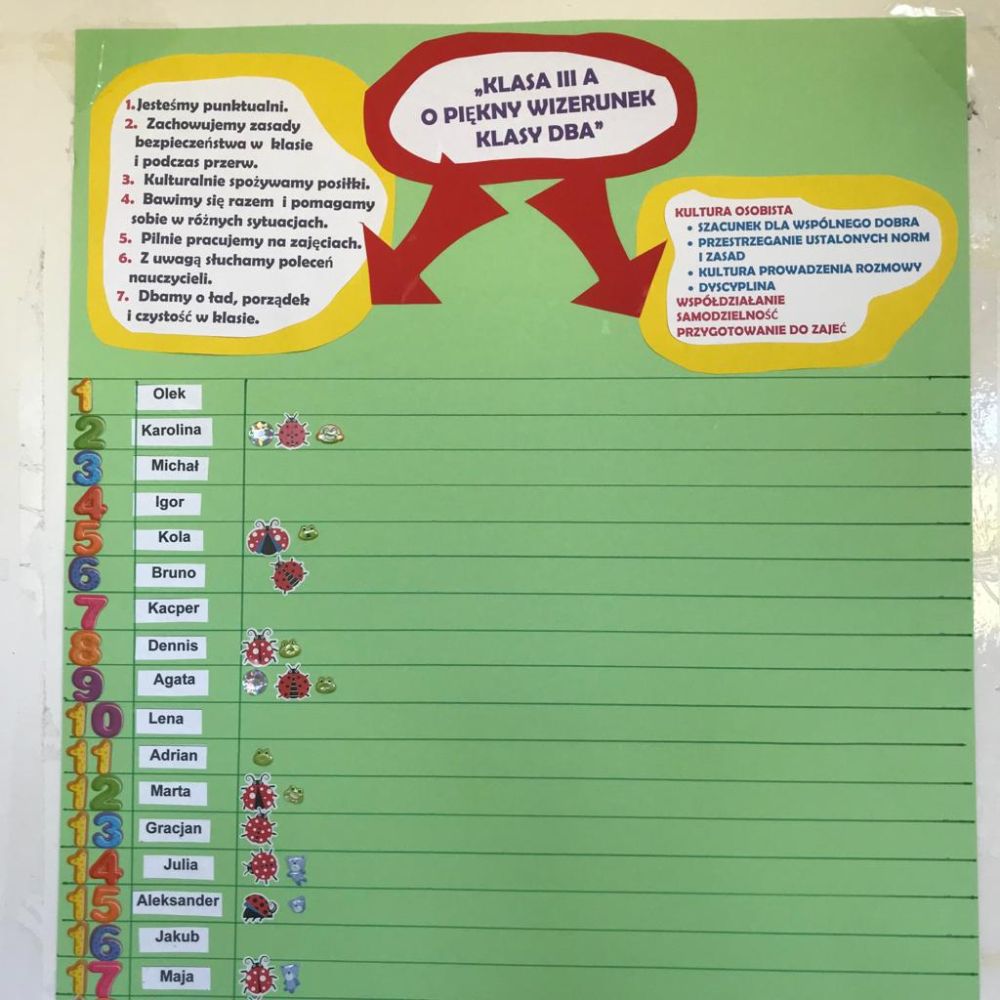 „KLASA III A
O PIĘKNY WIZERUNEK
KLASY DBA”
1. Jesteśmy punktualni.
2. Zachowujemy zasady
bezpieczeństwa w klasie
i podczas przerw.
3. Kulturalnie spożywamy posiłki.
4. Bawimy się razem i pomagamy
sobie w różnych sytuacjach.
5. Pilnie pracujemy na zajęciach.
6. Z uwagą słuchamy poleceń
nauczycieli.
7. Dbamy o ład, porządek
i czystość w klasie.
KULTURA OSOBISTA
• SZACUNEK DLA WSPÓLNEGO DOBRA
• PRZESTRZEGANIE USTALONYCH NORM
I ZASAD
• KULTURA PROWADZENIA ROZMOWY
• DYSCYPLINA
WSPÓŁDZIAŁANIE
SAMODZIELNOŚĆ
PRZYGOTOWANIE DO ZAJEĆ
1 Olek
2 Karolina
3 Michał
4 Igor
5 Kola
6 Bruno
7 Kacper
8 Dennis
9 Agata
10 Lena
11 Adrian
12 Marta
13 Gracjan
14 Julia
15 Aleksander
16 Jakub
17 Maja